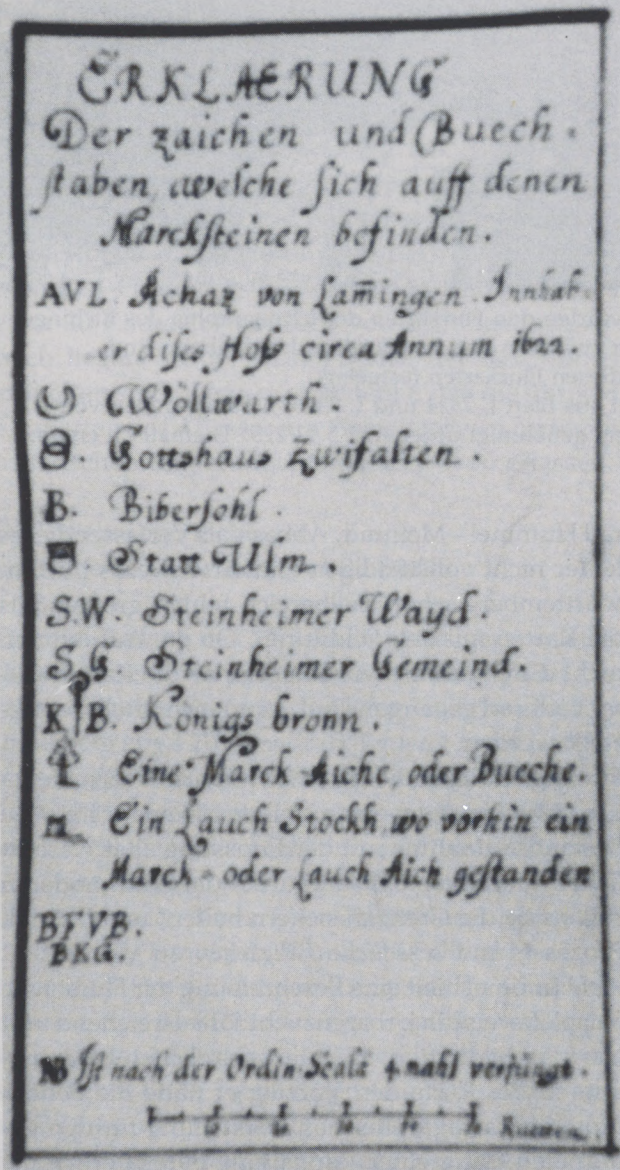 ERKLAERUNG
Der zaichen und Buech-
staben, welche sich auff denen
Marcksteinen befinden.
AVL. Achaz von Lam̄ingen. Innhab-
er dises Hofs circa Annum 1622.
Wöllwarth.
Gottshaus Zwifalten.
B. Bibersohl.
Statt Ulm.
S.W. Steinheimer Wayd.
S.G Steinheimer Gemeind.
K B. Königs bronn.
Eine Marck Aiche, oder Bueche.
Ein Lauch Stockh, wo vorhin ein
Marck- oder Lauch Aich gestanden
BFVB.
BKG.
NB Ist nach der Ordin. Scala 4 mahl verjüngt.